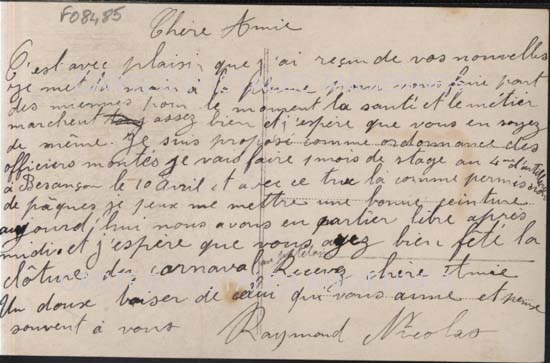 F08485
Chère Amie
C'est avec plaisir que j'ai reçu de vos nouvelles
je met la main à la plume pour vous faire part
des miennes pour le moment la santé et le métier
marchent assez bien et j'espère que vous en soyez
de même. Je suis proposé comme ordonnance des
officiers montés je vais faire 1 mois de stage au 4me d'artillerie
à Besançon le 10 avril et avec ce truc la comme permission
de pâques je peux me mettre une bonne ceinture
aujourd'hui nous avons eu cartier libre après
midi. et j'espère que vous ayez bien fêté la
clôture du carnaval Recevez chère Amie
Un doux baiser de celui qui vous aime et pense
souvent à vous Raymond Nicolas